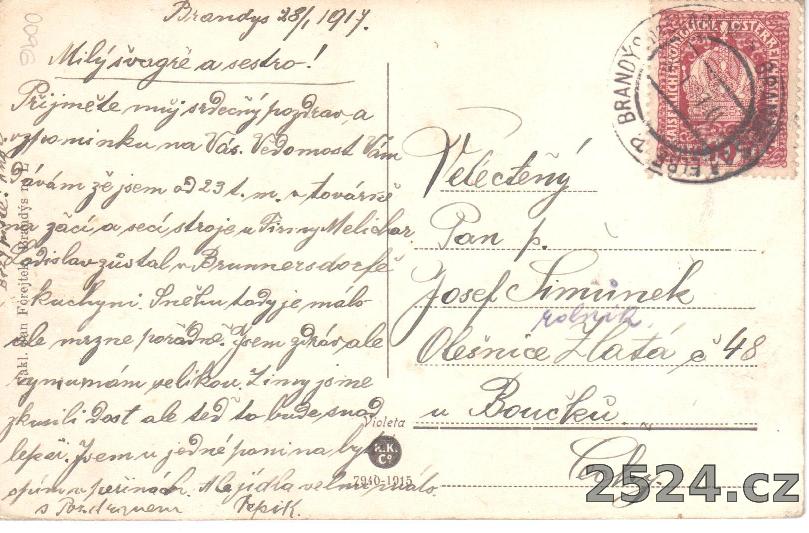 0096
Brandys 28/1 1917.
Milý švagře a sestro!
Přijměte můj srdečný pozdrav a
vzpomínku na Vás. Vědomost Vám
dávám že jsem od 23 t. m. v továrně
na žácí a secí stroje u Firmy Melichar
Ladislav zůstal v Brunnersdorfě
kuchyni. Sněhu tady je málo
ale mrzne pořádně. Jsem zdráv ale
rýmu mám velikou. Zimy jsme
zkusili dost ale teď to bude snad
lepší. Jsem u jedné paní na bytě
spím v peřinách. Ale jídla velmi málo.
s Pozdravem Pepík.
Nakl. Jan Forejtek, Brandýs n. L.
Violeta
K.K.
Co
7940-1915
BRANDÝS
Velectěný
Pan p.
Josef Šimůnek
rolník
Olešnice Zlatá č 48
u Boučků
Čechy.
2524.cz